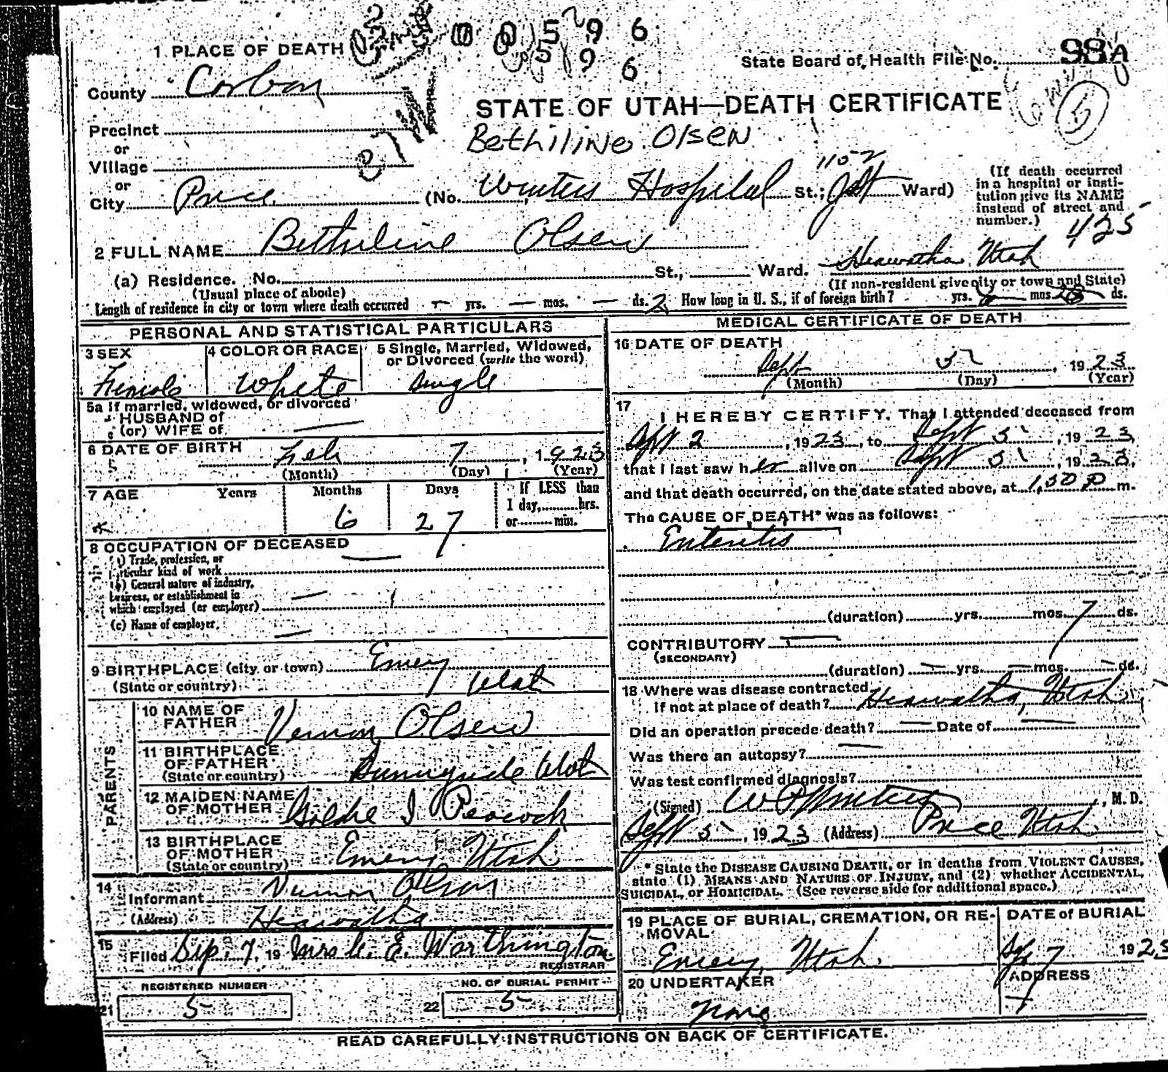 00596
596
98A
1 PLACE OF DEATH
State Board of Health File No.
County Carbon
STATE OF UTAH—DEATH CERTIFICATE
5
Precinct
Bethiline Olsen
or
Village
or
City Price (No. Winters Hospital St.; Ward)
1152
(If death occurred in a hospital or institution give its NAME instead of street and number.)
425
2 FULL NAME Bethiline Olsen
(a) Residence. No. St., Ward. Hiawatha Utah
(Usual place of abode) (If non-resident give city or town and State)
Length of residence in city or town where death occurred — yrs. — mos. — ds. 2 How long in U. S., if of foreign birth? yrs. mos. ds.
PERSONAL AND STATISTICAL PARTICULARS
3 SEX Female
4 COLOR OR RACE White
5 Single, Married, Widowed, or Divorced (write the word) Single
5a If married, widowed, or divorced
HUSBAND of
(or) WIFE of
6 DATE OF BIRTH Feb 7, 1923
(Month) (Day) (Year)
7 AGE Years Months Days If LESS than
6 27 1 day, hrs.
or min.
8 OCCUPATION OF DECEASED
(a) Trade, profession, or
particular kind of work
(b) General nature of industry,
business, or establishment in
which employed (or employer)
(c) Name of employer
9 BIRTHPLACE (city or town) Emery
(State or country) Utah
PARENTS
10 NAME OF FATHER Vernon Olsen
11 BIRTHPLACE OF FATHER (State or country) Sunnyside Utah
12 MAIDEN NAME OF MOTHER Goldie I Peacock
13 BIRTHPLACE OF MOTHER (State or country) Emery, Utah
14 Informant Vernon Olson
(Address) Hiawatha
15 Filed Sep. 7, 19 Mrs. E. Worthington
REGISTRAR
21 REGISTERED NUMBER 5
22 NO. OF BURIAL PERMIT 5
MEDICAL CERTIFICATE OF DEATH
16 DATE OF DEATH
Sept 5, 1923
(Month) (Day) (Year)
17 I HEREBY CERTIFY, That I attended deceased from
Sept 2, 1923, to Sept 5, 1923,
that I last saw her alive on Sept 5, 1923,
and that death occurred, on the date stated above, at 1,50 P m.
The CAUSE OF DEATH* was as follows:
Enteritis
(duration) yrs. mos. 7 ds.
CONTRIBUTORY
(SECONDARY)
(duration) — yrs. — mos. — ds.
18 Where was disease contracted
if not at place of death? Hiawatha, Utah
Did an operation precede death? — Date of —
Was there an autopsy?
Was test confirmed diagnosis?
(Signed) W P Winters, M. D.
Sept 5, 1923 (Address) Price Utah
* State the DISEASE CAUSING DEATH, or in deaths from VIOLENT CAUSES,
state (1) MEANS AND NATURE OF INJURY, and (2) whether ACCIDENTAL,
SUICIDAL, or HOMICIDAL. (See reverse side for additional space.)
19 PLACE OF BURIAL, CREMATION, OR REMOVAL
Emery, Utah.
DATE of BURIAL
7 1923
20 UNDERTAKER
None
ADDRESS
READ CAREFULLY INSTRUCTIONS ON BACK OF CERTIFICATE.